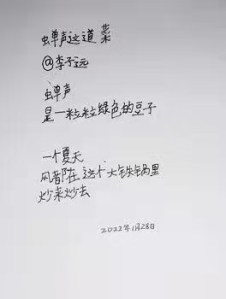 蝉声这道菜
@李不远
蝉声
是一粒粒绿色的豆子
一个夏天
风都在这个大铁锅里
炒来炒去
2022年1月28日